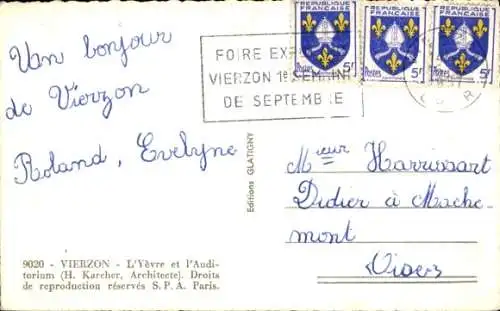 REPUBLIQUE FRANÇAISE REPUBLIQUE FRANÇAISE REPUBLIQUE FRANÇAISE
Postes 5f Postes 5f Postes 5f
FOIRE EXPO
VIERZON 1e SEMAINE
DE SEPTEMBRE
Un bonjour
de Vierzon
Roland, Evelyne
Editions GLATIGNY
Mieur Harrissart
Didier à Mache-
mont
Oise
9020 - VIERZON - L'Yèvre et l'Audi-
torium (H. Karcher, Architecte). Droits
de reproduction réservés S. P. A. Paris.